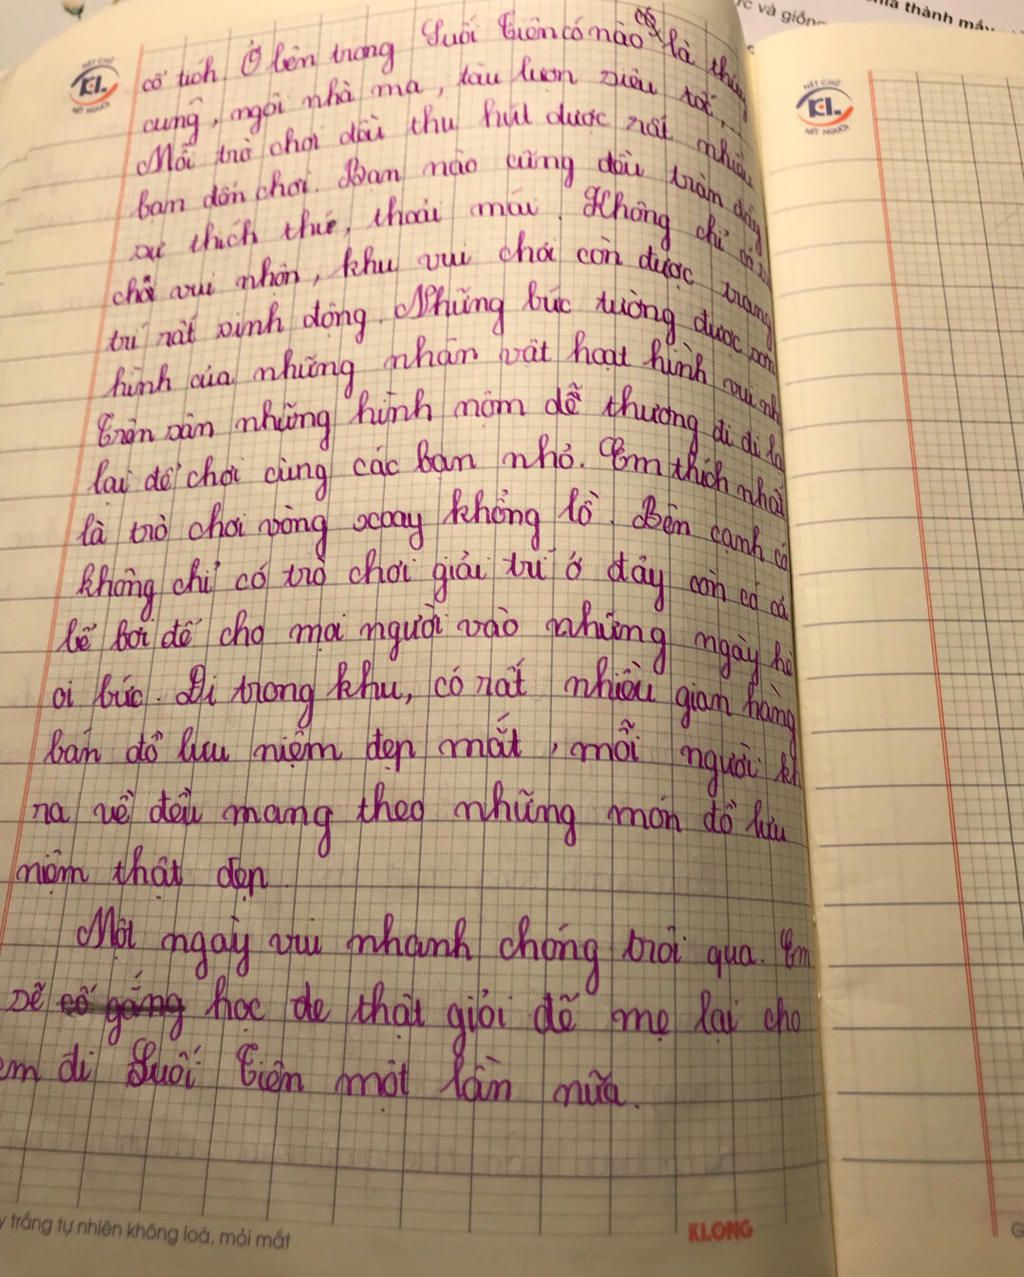 ực và giống
ĩa thành mẫu
NÉT CHỮ
KL
NẾT NGƯỜI
NÉT CHỮ
KL
NẾT NGƯỜI
cổ tích. Ở bên trong Suối Tiên có nào có là thủy
cung, ngôi nhà ma, tàu lượn siêu tốc,
Mỗi trò chơi đều thu hút được rất nhiều
bạn đến chơi. Bạn nào cũng đều tràn đầy
sự thích thú, thoải mái. Không chỉ có
chơi vui nhộn, khu vui chơi còn được trang
trí rất sinh động. Những bức tường được sơn
hình của những nhân vật hoạt hình vui nh
Trên sân những hình mộm dễ thương đi đi la
lại để chơi cùng các bạn nhỏ. Em thích nhất
là trò chơi vòng xoay khổng lồ. Bên cạnh có
không chỉ có trò chơi giải trí ở đây còn có cả
bể bơi để cho mọi người vào những ngày hè
oi bức. Đi trong khu, có rất nhiều gian hàng
bán đồ lưu niệm đẹp mắt, mỗi người kh
ra về đều mang theo những món đồ lưu
niệm thật đẹp.
Một ngày vui nhanh chóng trôi qua. Em
sẽ cố gắng học de thật giỏi để mẹ lại cho
em đi Suối Tiên một lần nữa.
y trắng tự nhiên không loá, mỏi mắt
KLONG
G